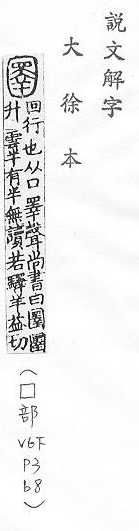 説文解字
大徐本
圛
回行也从囗睪聲尚書曰圛圛
升雲半有半無讀若驛羊益切
(囗部
V6下
P3
b8)